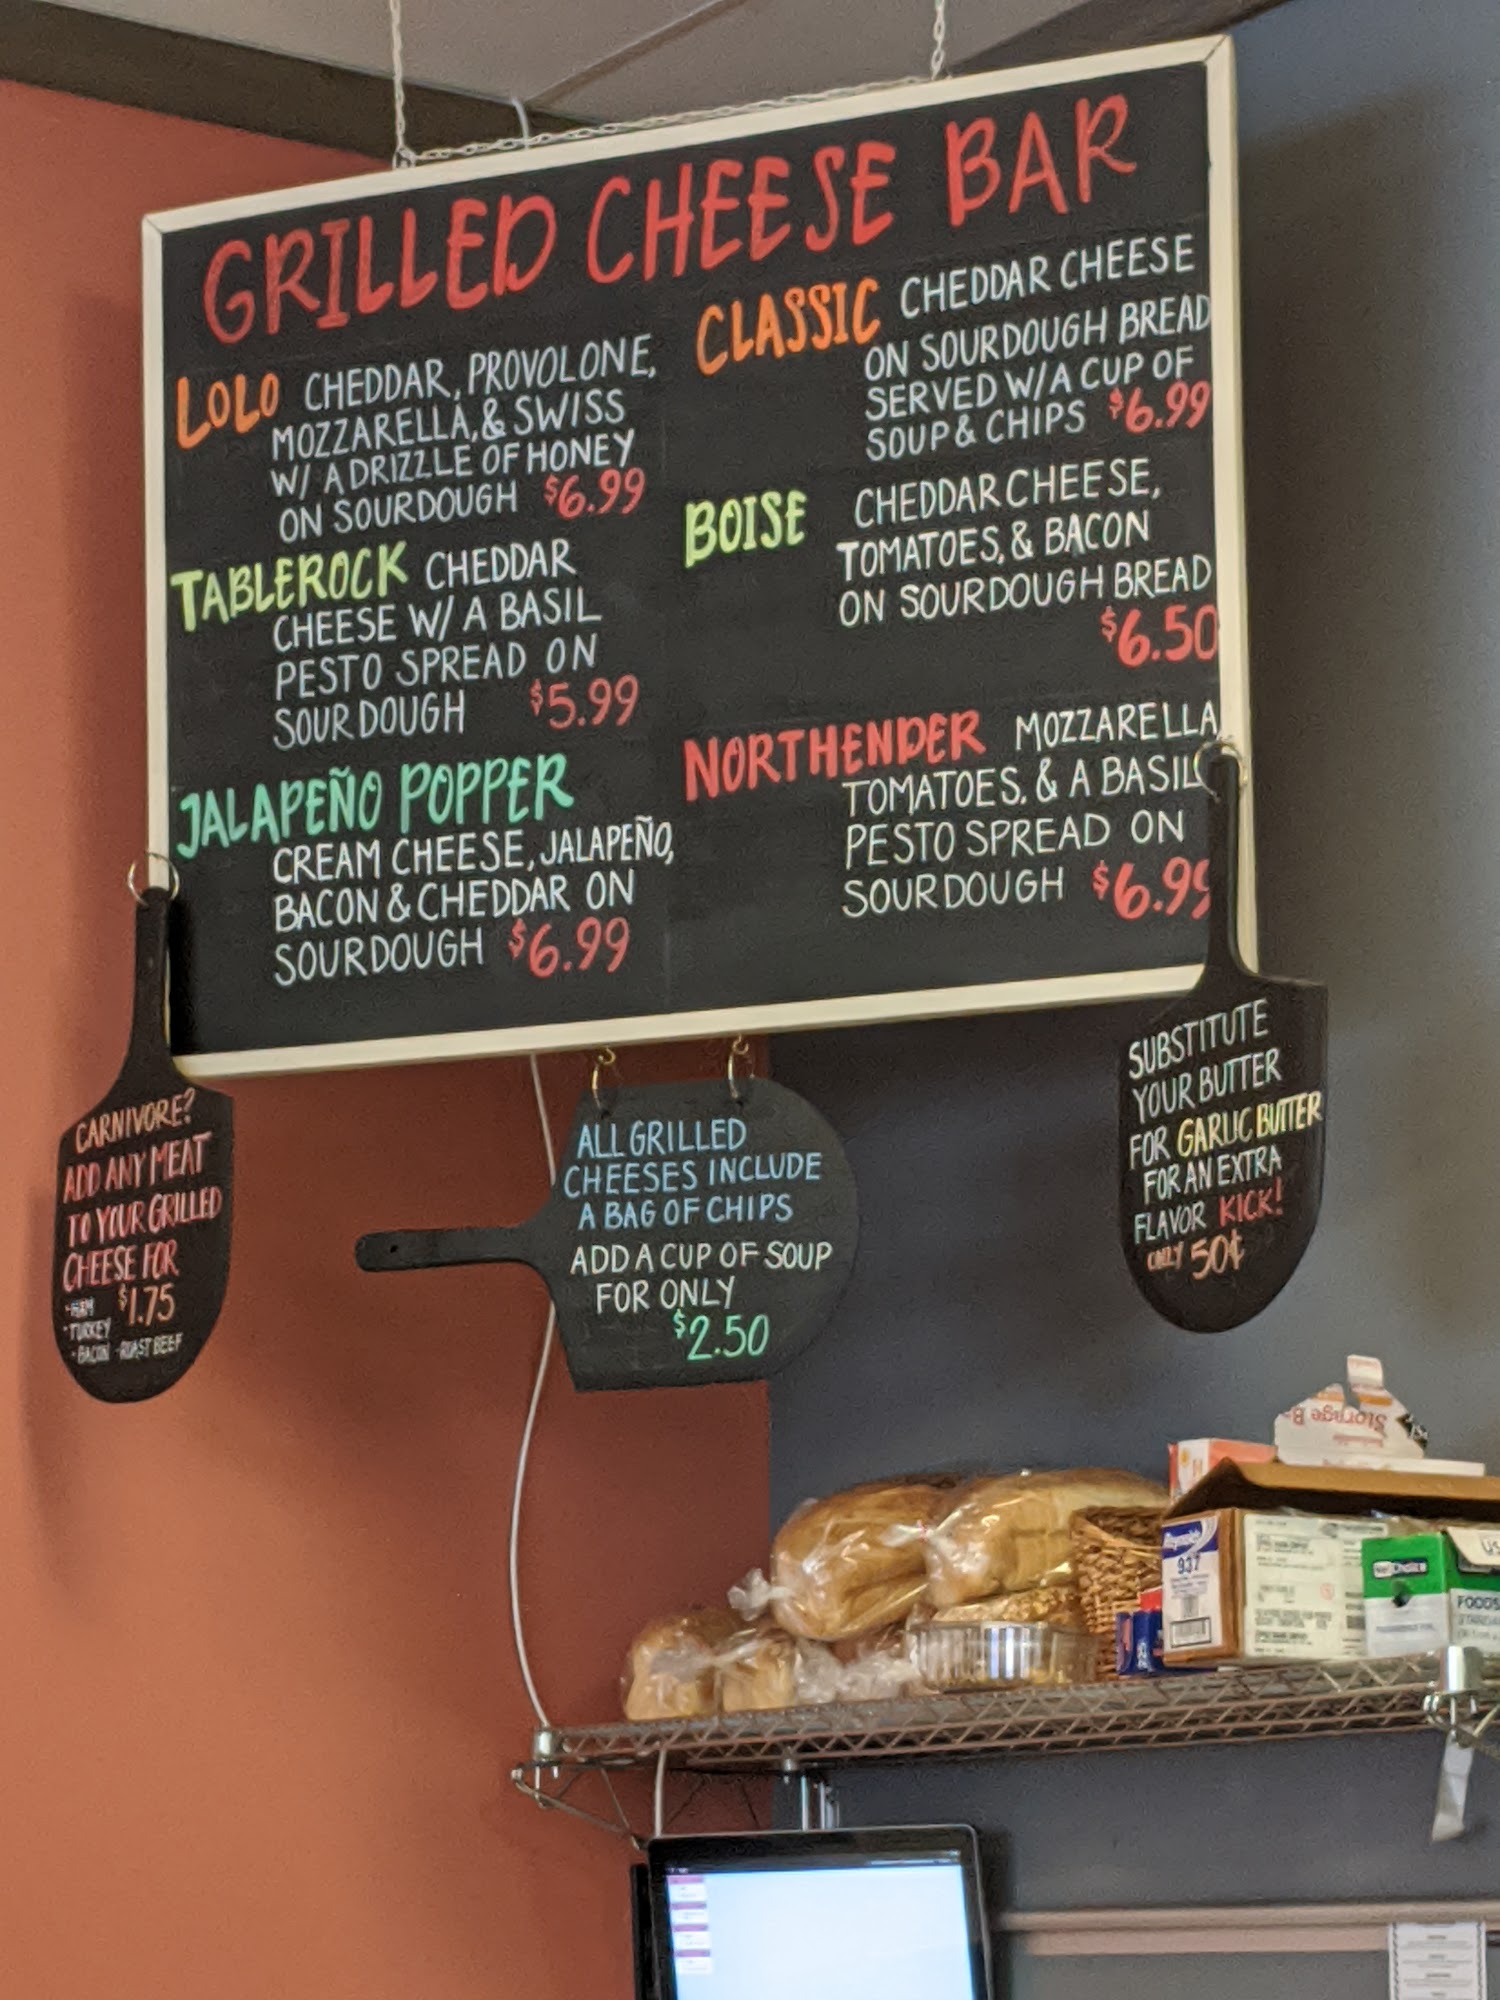 GRILLED CHEESE BAR
LOLO CHEDDAR, PROVOLONE,
MOZZARELLA, & SWISS
W/ A DRIZZLE OF HONEY
ON SOURDOUGH $6.99
TABLEROCK CHEDDAR
CHEESE W/ A BASIL
PESTO SPREAD ON
SOURDOUGH $5.99
JALAPEÑO POPPER
CREAM CHEESE, JALAPEÑO,
BACON & CHEDDAR ON
SOURDOUGH $6.99
CLASSIC CHEDDAR CHEESE
ON SOURDOUGH BREAD
SERVED W/ A CUP OF
SOUP & CHIPS $6.99
BOISE CHEDDAR CHEESE,
TOMATOES, & BACON
ON SOURDOUGH BREAD
$6.50
NORTHENDER MOZZARELLA,
TOMATOES, & A BASIL
PESTO SPREAD ON
SOURDOUGH $6.99
CARNIVORE?
ADD ANY MEAT
TO YOUR GRILLED
CHEESE FOR
$1.75
·HAM
·TURKEY
·BACON ·ROAST BEEF
ALL GRILLED
CHEESES INCLUDE
A BAG OF CHIPS
ADD A CUP OF SOUP
FOR ONLY
$2.50
SUBSTITUTE
YOUR BUTTER
FOR GARLIC BUTTER
FOR AN EXTRA
FLAVOR KICK!
ONLY 50¢
Storage
Reynolds
937
FOODS